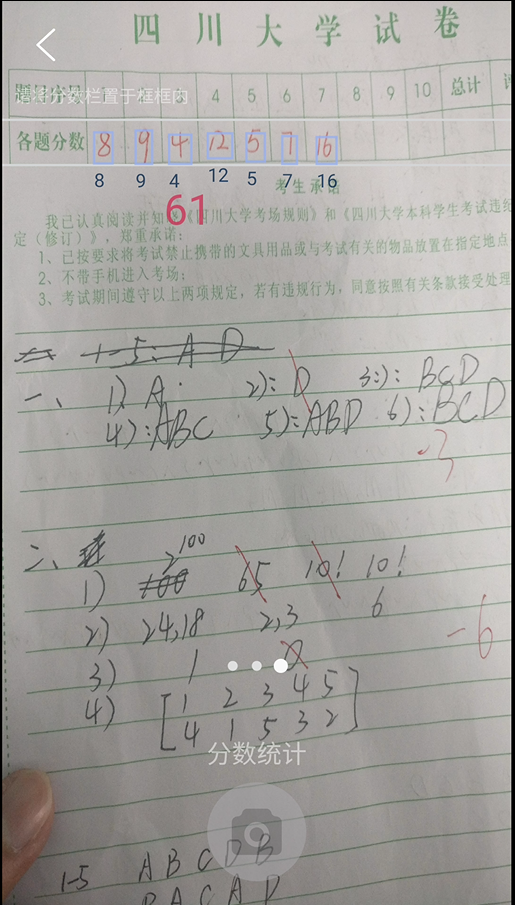 四川大学试卷
题目序号 1 2 3 4 5 6 7 8 9 10 总计
请将分数栏置于框框内
各题分数 8 9 4 12 5 7 16
8 9 4 12 5 7 16
61
考生承诺
我已认真阅读并知《四川大学考场规则》和《四川大学本科学生考试违纪
定(修订)》,郑重承诺:
1、已按要求将考试禁止携带的文具用品或与考试有关的物品放置在指定地点
2、不带手机进入考场;
3、考试期间遵守以上两项规定,若有违规行为,同意按照有关条款接受处理
一、 1-5: A D
一、 1). A. 2): D 3:): BCD
4): ABC 5): ABD 6): BCD
-3
二、
1) 2^100 100 65 10! 10!
2) 24,18 2,3 6
-6
3) 1 0
4) [1 2 3 4 5
4 1 5 3 2]
分数统计
1-5 A B C D B
B A C A D